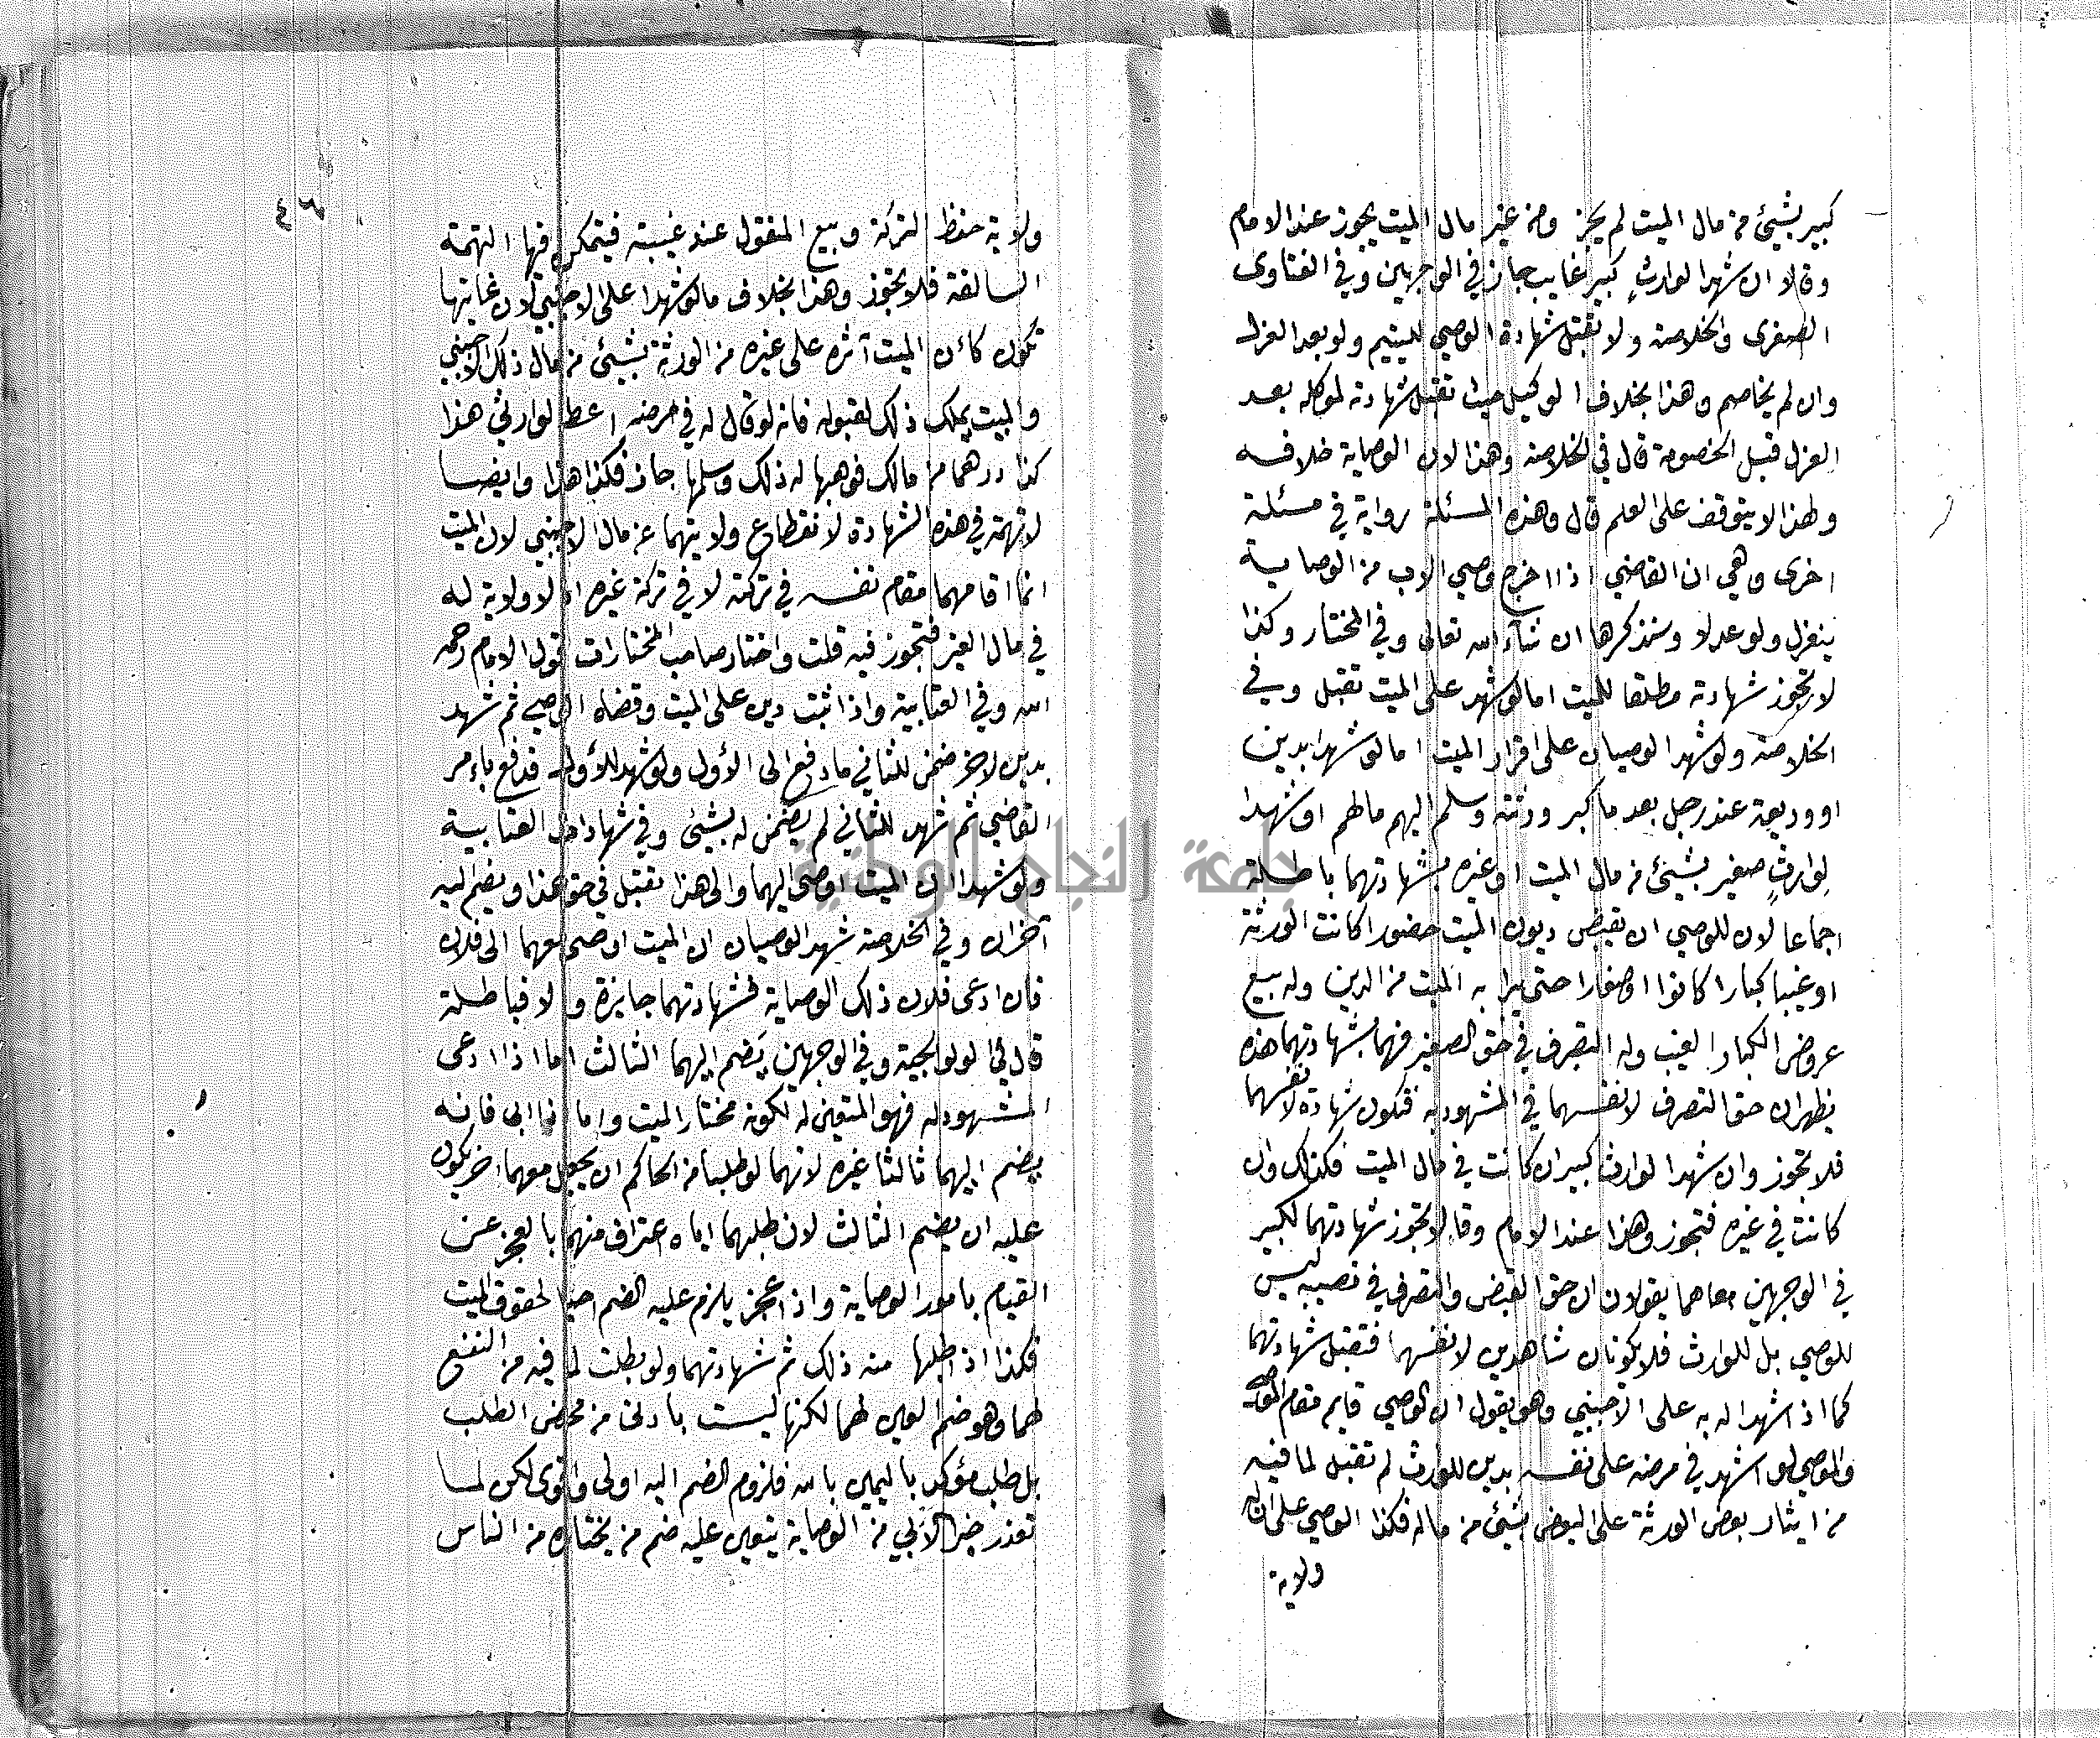 كبير بشيئ من مال الميت لم يجز ومن غير مال الميت يجوز عند الامام
وقالا ان شهد الوارث كبير غايب جاز في الوجهين وفي الفتاوى
الصغرى والخلاصة ولا تقبل شهادة الوصي لليتيم ولو بعد العزل
وان لم يخاصم وهذا بخلاف الوكيل حيث تقبل شهادته لموكله بعد
العزل قبل الخصومة قال في الخلاصة وهذا لان الوصاية خلافه
ولهذا لا يتوقف على العلم قال وهذه المسئلة رواية في مسئلة
اخرى وهي ان القاضي اذا اخرج وصي الاب من الوصاية
ينعزل ولو عدلا وسنذكرها ان شآء الله تعالى وفي المختار وكذا
لا تجوز شهادته مطلقا للميت اما لو شهد على الميت تقبل وفي
الخلاصة ولو شهد الوصيان على اقرار الميت اما لو شهدا بدين
او وديعة عند رجل بعد ما كبر ورثته وسلم اليهم مالهم او شهدا
لوارثٍ صغير بشيئ من مال الميت او غيره فشهادتهما باطلة
اجماعا لان للوصي ان يقبض ديون الميت حضورا كانت الورثة
او غيبا كبارا كانوا او صغارا حتى يبرا به الميت من الدين وله بيع
عروض الكبار الغيب وله التصرف في حق الصغير فهما بشهادتهما هذه
يظهران حق التصرف لانفسهما في المشهود به فتكون شهادة لانفسهما
فلا تجوز وان شهدا لوارث كبير ان كانت في مال الميت فكذلك وان
كانت في غيره فتجوز وهذا عند الامام وقالا تجوز شهادتهما لكبير
في الوجهين معا هما يقولان ان حق القبض والتصرف في نصيبه ليس
للوصي بل للوارث فلا يكونان شاهدين لانفسهما فتقبل شهادتهما
كما اذا شهدا له به على الاجنبي وهو يقول ان الوصي قايم مقام الموصي
والموصي لو اشهد في مرضه على نفسه بدين للوارث لم تقبل لما فيه
من ايثار بعض الورثة على البعض بشيئ من ماله فكذا الوصي على ان له
ولاية
٤٦
ولاية حفظ التركة وبيع المنقول عند غيبته فيتمكن فيها التهمة
السالفة فلا تجوز وهذا بخلاف ما لو شهدا على الاجنبي لان غايتها
تكون كان الميت آثره على غيره من الورثة بشيئ من مال ذلك الاجنبي
والميت يملك ذلك لقبوله فانه لو قال له في مرضه اعط لوارثي هذا
كذا درهما من مالك فوهبها له ذلك وسلمها جاز فكذا هذا وايضا
لا تهمة في هذه الشهادة لانقطاع ولايتهما عن مال الاجنبي لان الميت
انما اقامهما مقام نفسه في تركته لا في تركة غيره اذ لا ولاية له
في مال الغير فتجوز فيه قلت واختار صاحب المختارات قول الامام رحمه
الله وفي العتابية واذا ثبت دين على الميت وقضاه الوصي ثم شهد
بدين لاخر ضمن للثاني ما دفع الى الأول ولو شهد للأول فدفع باءمر
القاضي ثم شهد للثاني لم يضمن له بشيئ وفي شهادات العتابية
ولو شهدا ان الميت اوصى اليهما والى هذا تقبل في حق هذا ويضم اليه
آخران وفي الخلاصة شهد الوصيان ان الميت اوصى معهما الى فلان
فان ادعى فلان ذلك الوصاية فشهادتهما جايزة والا فباطلة
قال في الولوالجية وفي الوجهين يضم اليهما الثالث اما اذا ادعى
المشهود له فهو المتعين له لكونه مختار الميت واما اذا ابى فانه
يضم اليهما ثالثا غيره لانهما لو طلبا من الحاكم ان يجعل معهما اخر يكون
عليه ان يضم الثالث لان طلبهما اياه اعتراف منهما بالعجز عن
القيام بامور الوصاية واذا عجز يلزم عليه الضم احيا لحقوق الميت
فكذا اذا طلبها منه ذلك ثم شهادتهما ولو بطلت لما فيه من النفع
لهما وهو ضم المعين لهما لكنها ليست بادنى من محض الطلب
بل طلب مؤكد باليمين بالله فلزوم الضم اليه اولى واقوى لكن لما
تعذر جبر الآبي من الوصاية يتعين عليه ضم من يختاره من الناس
جامعة النجاح الوطنية